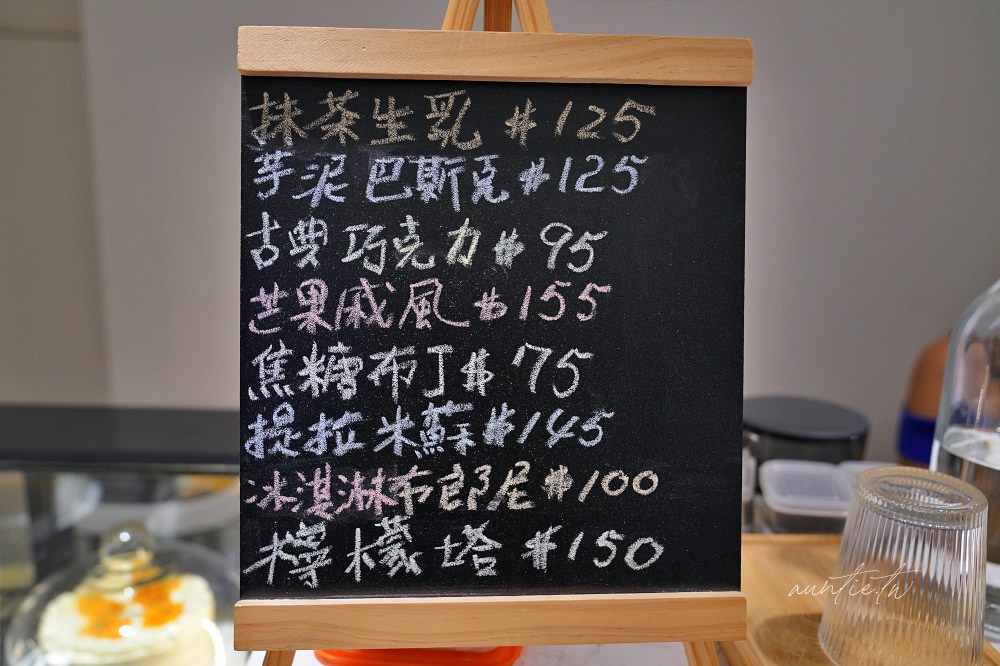 抹茶生乳 $125
芋泥巴斯克 $125
古典巧克力 $95
芒果戚風 $155
焦糖布丁 $75
提拉米蘇 $145
冰淇淋布郎尼 $100
檸檬塔 $150
auntie.tw